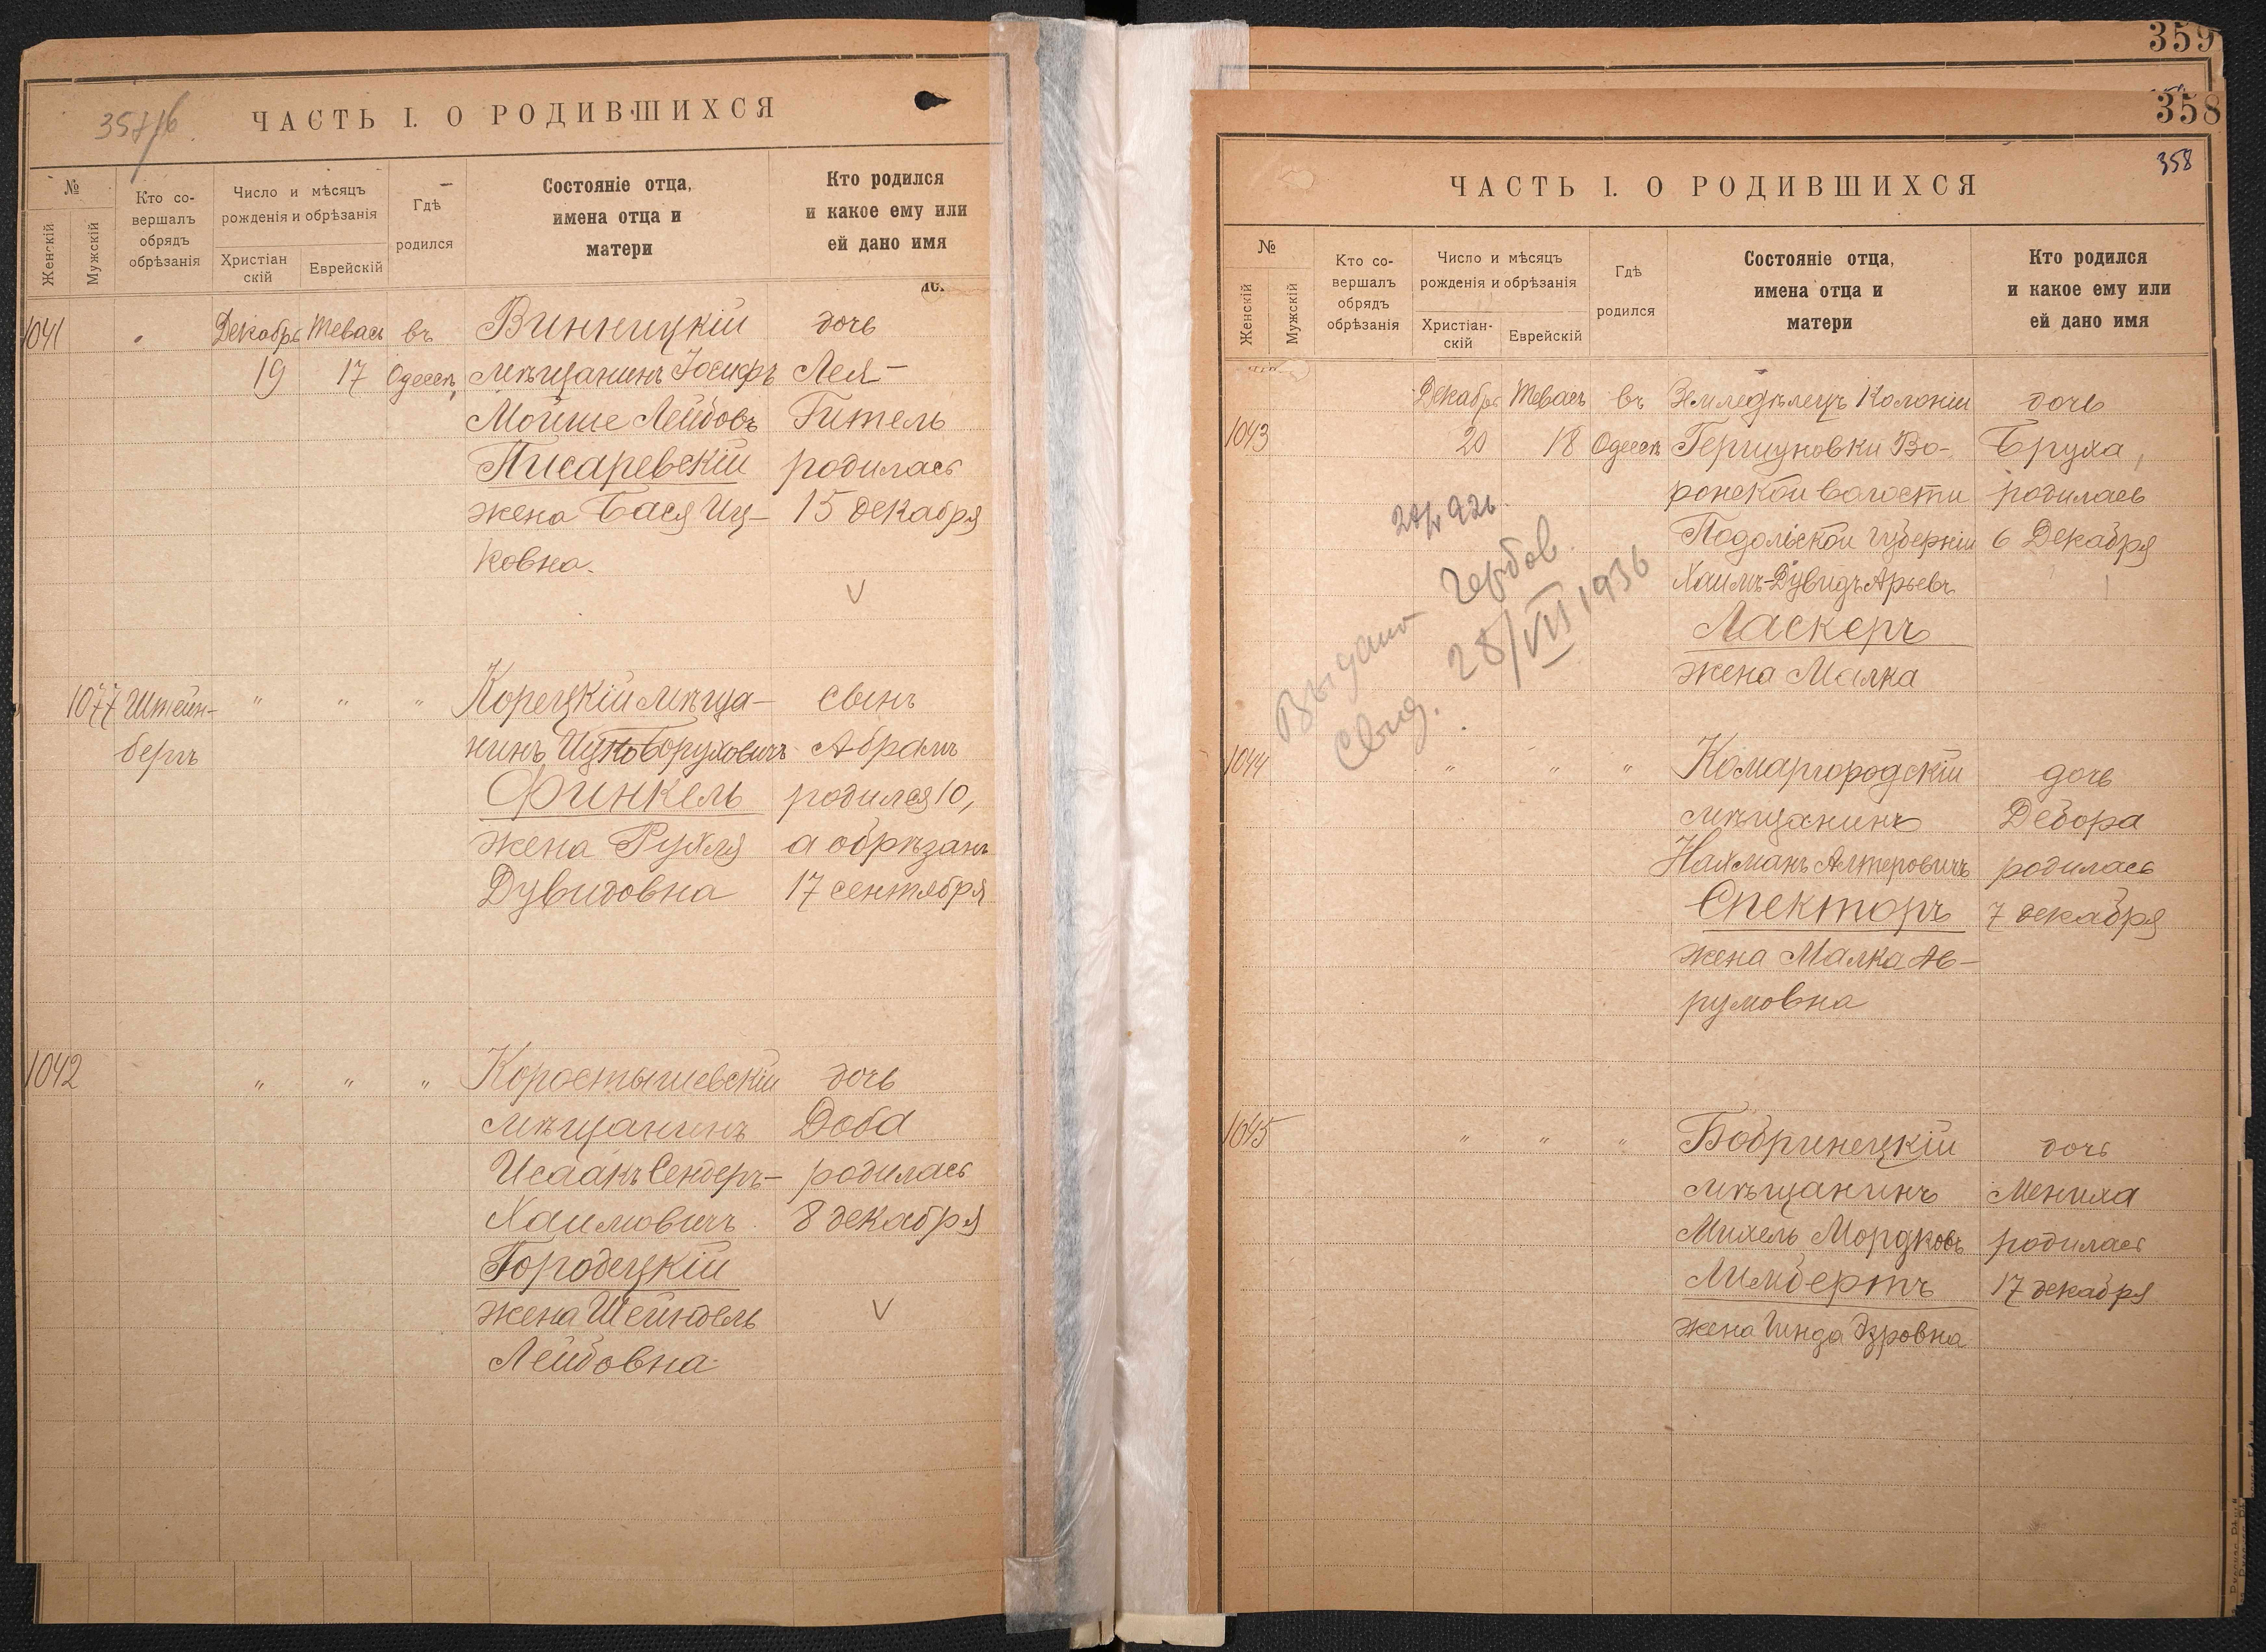 357/б
ЧАСТЬ I. О РОДИВШИХСЯ
№
Женскій
Мужскій
Кто со-
вершалъ
обрядъ
обрѣзанія
Число и мѣсяцъ
рожденія и обрѣзанія
Христіан
скій
Еврейскій
Гдѣ
родился
Состояніе отца,
имена отца и
матери
Кто родился
и какое ему или
ей дано имя
1041 Декабрь Тевась въ Винницкій дочь
19 17 Одессѣ мѣщанинъ Іосифъ Лея-
Мойше Лейбовъ Гитель
Писаревскій родилась
жена Бася Иц- 15 декабря
ковна.
V
1077 Штейн- " " " Корецкій мѣща- сынъ
бергъ нинъ Ицко Боруховичъ Абрамъ
Финкель родился 10,
жена Рухля а обрѣзанъ
Дувидовна 17 сентября
1042 " " " Коростышевскій дочь
мѣщанинъ Доба
Исаакъ Сендеръ- родилась
Хаимовичъ 8 декабря
Городецкій
жена Шейндель V
Лейбовна
359
358
358
ЧАСТЬ I. О РОДИВШИХСЯ
№
Женскій
Мужскій
Кто со-
вершалъ
обрядъ
обрѣзанія
Число и мѣсяцъ
рожденія и обрѣзанія
Христіан-
скій
Еврейскій
Гдѣ
родился
Состояніе отца,
имена отца и
матери
Кто родился
и какое ему или
ей дано имя
Декабрь Тевась въ Земледѣлецъ Колоніи дочь
1043 20 18 Одессѣ Гершуновки Во- Бруха,
ронской волости родилась
Подольской губерніи 6 Декабря
Хаимъ-Дувидъ Арьевъ
Ласкеръ
жена Малка
Выдано
Свид. 28/VII 1936
1044 " " " Комаргородскій дочь
мѣщанинъ Дебора
Нахманъ Алтеровичъ родилась
Спекторъ 7 декабря
жена Малка Ав-
румовна
1045 " " " Бобринецкій дочь
мѣщанинъ Мениха
Михель Мордковъ родилась
Лимбертъ 17 декабря
жена Гинда